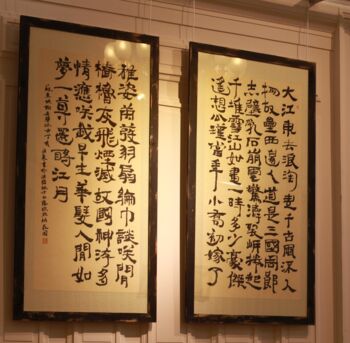 大江東去浪淘盡千古風流人
物故壘西邊人道是三國周郎
赤壁乱石崩雲驚濤裂岸捲起
千堆雪江山如畫一時多少豪傑
遙想公瑾當年小喬初嫁了
雄姿英發羽扇綸巾談笑間
檣櫓灰飛煙滅故國神遊多
情應笑我早生華髮人間如
夢一尊還酹江月